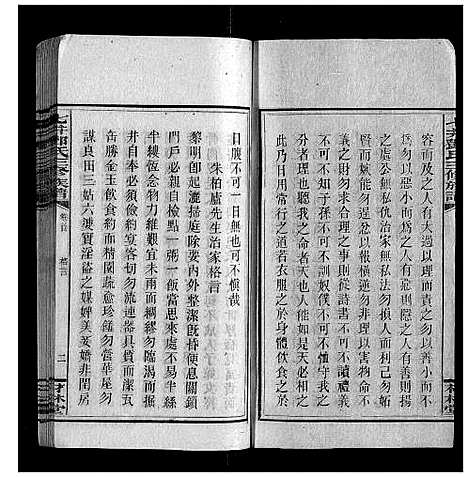 容而及之人有大過以理而責之勿以善小而不
爲勿以惡小而爲之人有惡則隱之人有善則揚
之處公無私仇治家無私法勿損人而利己勿妬
賢而嫉能勿逞忿以報橫逆勿非理以害物命不
義之財勿求合理之事則從詩書不可不讀禮義
不可不知子孫不可不訓奴僕不可不恤守我之
分者理也聽我之命者天也人能如是天必相之
此乃日用常行之道若衣服之於身體飲食之於
口腹不可一日無也可不愼哉
朱柏廬先生治家格言
黎明卽起灑掃庭除要內外整潔旣昏便息關鎖
門戶必親自檢點一粥一飯當思來處不易半絲
半縷恆念物力維艱宜未雨而綢繆勿臨渴而掘
井自奉必須儉約宴客切勿流連器具質而潔瓦
缶勝金玉飲食約而精園蔬愈珍饈勿營華屋勿
謀良田三姑六婆實淫盜之媒婢美妾嬌非閨房
卷首
格言
二